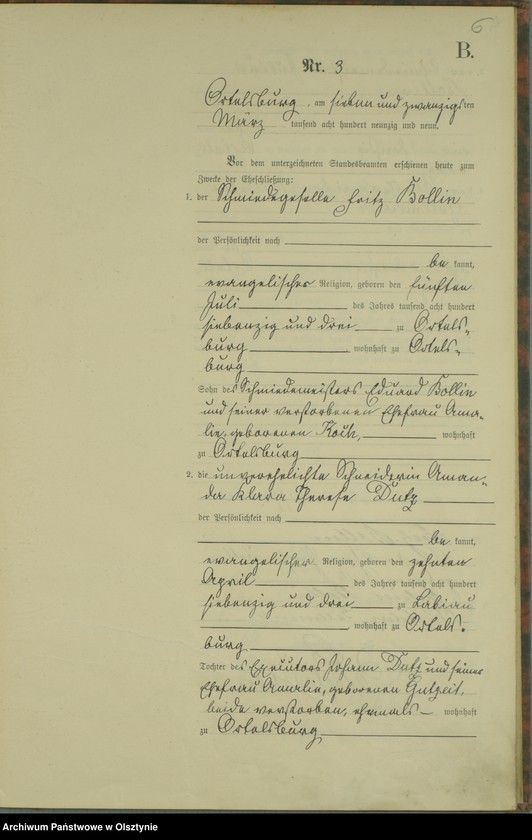 6
B.
Nr. 3
Ortelsburg, am sieben und zwanzigsten
März tausend acht hundert neunzig und neun.
Vor dem unterzeichneten Standesbeamten erschienen heute zum
Zwecke der Eheschließung:
1. der Schmiedegeselle Fritz Kollin
der Persönlichkeit nach
be kannt,
evangelischer Religion, geboren den fünften
Juli des Jahres tausend acht hundert
siebenzig und drei zu Ortels-
burg wohnhaft zu Ortels-
burg
Sohn des Schmiedemeisters Eduard Kollin
und seiner verstorbenen Ehefrau Ama-
lie, geborenen Koch, wohnhaft
zu Ortelsburg
2. die unverehelichte Schneiderin Aman-
da Klara Therese Dutz
der Persönlichkeit nach
be kannt,
evangelischer Religion, geboren den zehnten
April des Jahres tausend acht hundert
siebenzig und drei zu Labiau
wohnhaft zu Ortels-
burg
Tochter des Executors Johann Dutz und seiner
Ehefrau Amalie, geborenen Gutzeit,
beide verstorben, ehemals wohnhaft
zu Ortelsburg
Archiwum Państwowe w Olsztynie